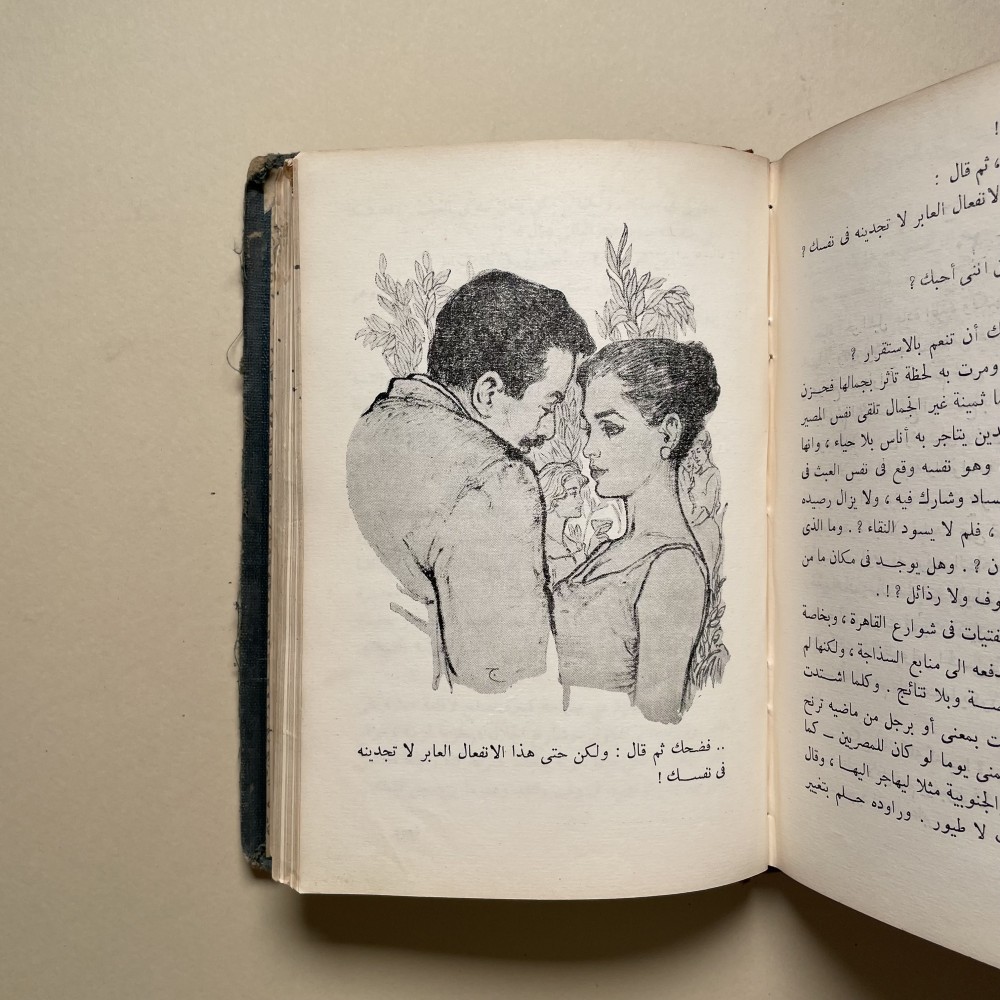 .. فضحك ثم قال : ولكن حتى هذا الانفعال العابر لا تجدينه
فى نفسك !
!
، ثم قال :
لانفعال العابر لا تجدينه فى نفسك ?
اننى أحبك ?
ك أن تنعم بالاستقرار ?
ومرت به لحظة تأثر بجمالها فحزن
ثمينة غير الجمال تلقى نفس المصير
يتاجر به أناس بلا حياء ، وانها
وهو نفسه وقع فى نفس العبث فى
ساد وشارك فيه ، ولا يزال رصيده
، فلم لا يسود النقاء ? . وما الذى
ن ? . وهل يوجد فى مكان ما من
وف ولا رذائل ? ! .
فتيات فى شوارع القاهرة ، وبخاصة
دفعه الى منابع السذاجة ، ولكنها لم
مة وبلا نتائج . وكلما اشتدت
ت بمعنى أو برجل من ماضيه ترنح
منى يوما لو كان للمصريين – كما
الجنوبية مثلا ليهاجر اليها ، وقال
لا طيور . وراوده حلم بتغيير